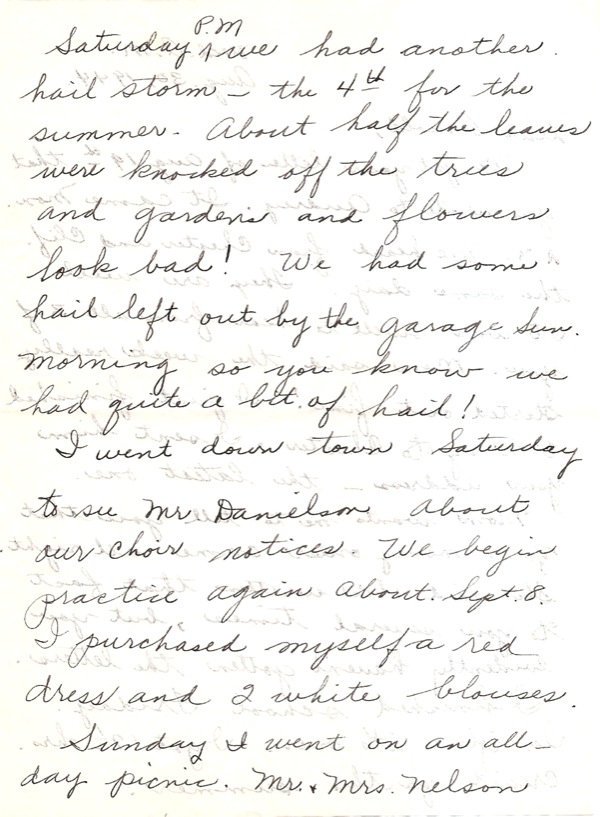 Saturday P.M we had another
hail storm - the 4th for the
summer. About half the leaves
were knocked off the trees
and gardens and flowers
look bad! We had some
hail left out by the garage Sun.
morning so you know we
had quite a bit of hail!
I went down town Saturday
to see Mr Danielson about
our choir notices. We begin
practice again about Sept. 8.
I purchased myself a red
dress and 2 white blouses.
Sunday I went on an all-
day picnic. Mr. & Mrs. Nelson